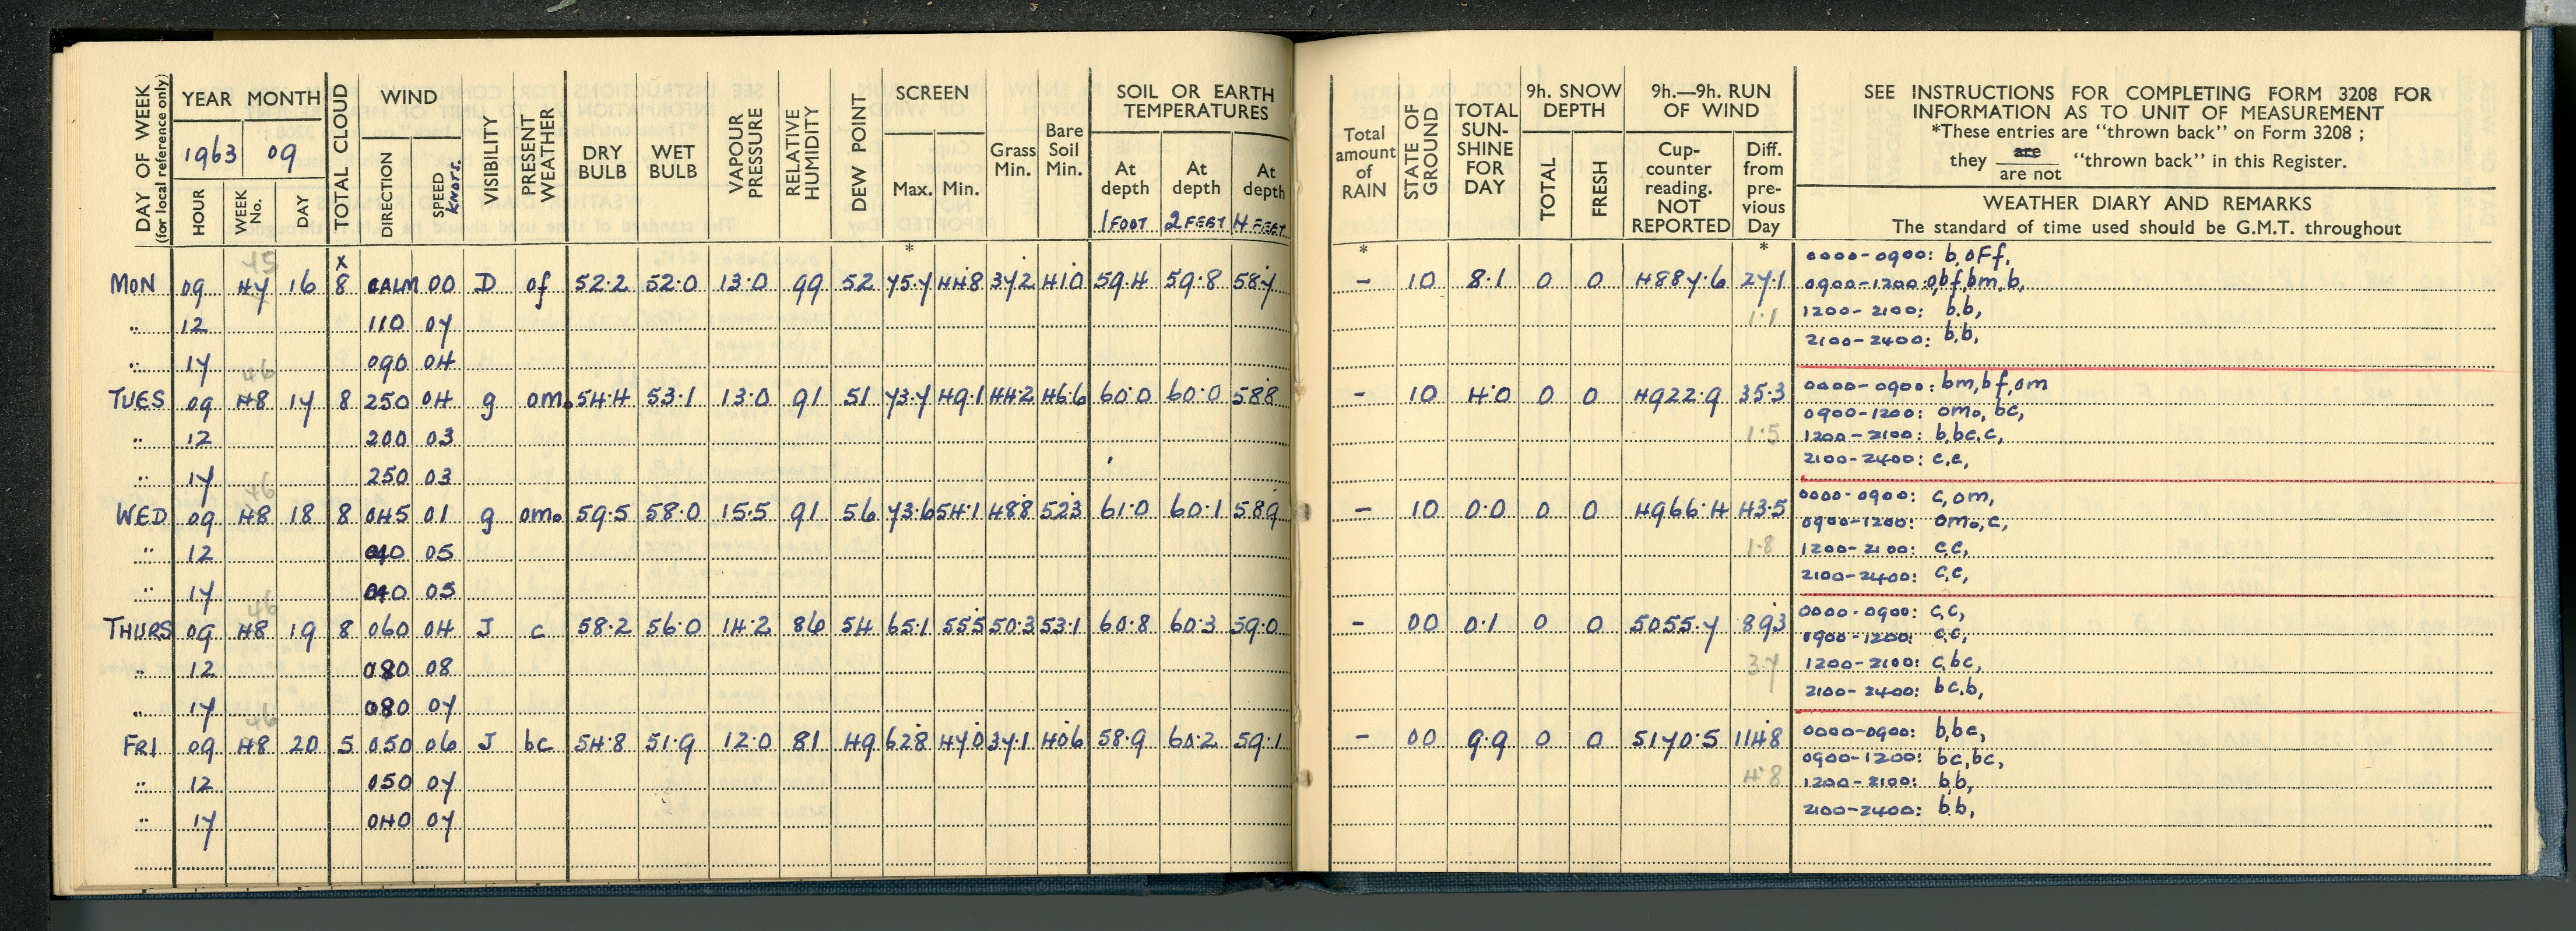 DAY OF WEEK
(for local reference only)
YEAR MONTH
1963 09
HOUR
WEEK No.
DAY
TOTAL CLOUD
WIND
DIRECTION
SPEED
KNOTS.
VISIBILITY
PRESENT WEATHER
DRY BULB
WET BULB
VAPOUR PRESSURE
RELATIVE HUMIDITY
DEW POINT
SCREEN
Max. Min.
Grass Min.
Bare Soil Min.
SOIL OR EARTH
TEMPERATURES
At depth At depth At depth
1 FOOT 2 FEET 4 FEET
*
45
x
MON 09 47 16 8 CALM 00 D of 52.2 52.0 13.0 99 52 75.7 44.8 37.2 41.0 59.4 59.8 58.7
" 12 110 07
" 17 090 04
46
TUES 09 48 17 8 250 04 g omo 54.4 53.1 13.0 91 51 73.7 49.1 44.2 46.6 60.0 60.0 58.8
" 12 200 03
" 17 250 03
46
WED 09 48 18 8 045 01 g omo 59.5 58.0 15.5 91 56 73.6 54.1 48.8 52.3 61.0 60.1 58.9
" 12 05
" 17 05
46
THURS 09 48 19 8 060 04 J c 58.2 56.0 14.2 86 54 65.1 55.5 50.3 53.1 60.8 60.3 59.0
" 12 080 08
" 17 080 07
46
FRI 09 48 20 5 050 06 J bc 54.8 51.9 12.0 81 49 62.8 47.0 37.1 40.6 58.9 60.2 59.1
" 12 050 07
" 17 040 07
Total amount of RAIN
STATE OF GROUND
TOTAL SUN-SHINE FOR DAY
9h. SNOW DEPTH
TOTAL
FRESH
9h.—9h. RUN OF WIND
Cup-counter reading. NOT REPORTED
Diff. from pre-vious Day
SEE INSTRUCTIONS FOR COMPLETING FORM 3208 FOR
INFORMATION AS TO UNIT OF MEASUREMENT
*These entries are "thrown back" on Form 3208 ;
they are / are not "thrown back" in this Register.
WEATHER DIARY AND REMARKS
The standard of time used should be G.M.T. throughout
* *
– 10 8.1 0 0 4887.6 27.1
1.1
0000-0900: b,oFf,
0900-1200: obf,bm,b,
1200-2100: b.b,
2100-2400: b.b,
– 10 4.0 0 0 4922.9 35.3
1.5
0000-0900: bm,bf,om
0900-1200: omo, bc,
1200-2100: b,bc.c,
2100-2400: c,c,
– 10 0.0 0 0 4966.4 43.5
1.8
0000-0900: c,om,
0900-1200: omo,c,
1200-2100: c,c,
2100-2400: c,c,
– 00 0.1 0 0 5055.7 89.3
3.7
0000-0900: c,c,
0900-1200: c,c,
1200-2100: c,bc,
2100-2400: bc.b,
– 00 9.9 0 0 5170.5 114.8
4.8
0000-0900: b,bc,
0900-1200: bc,bc,
1200-2100: b,b,
2100-2400: b.b,